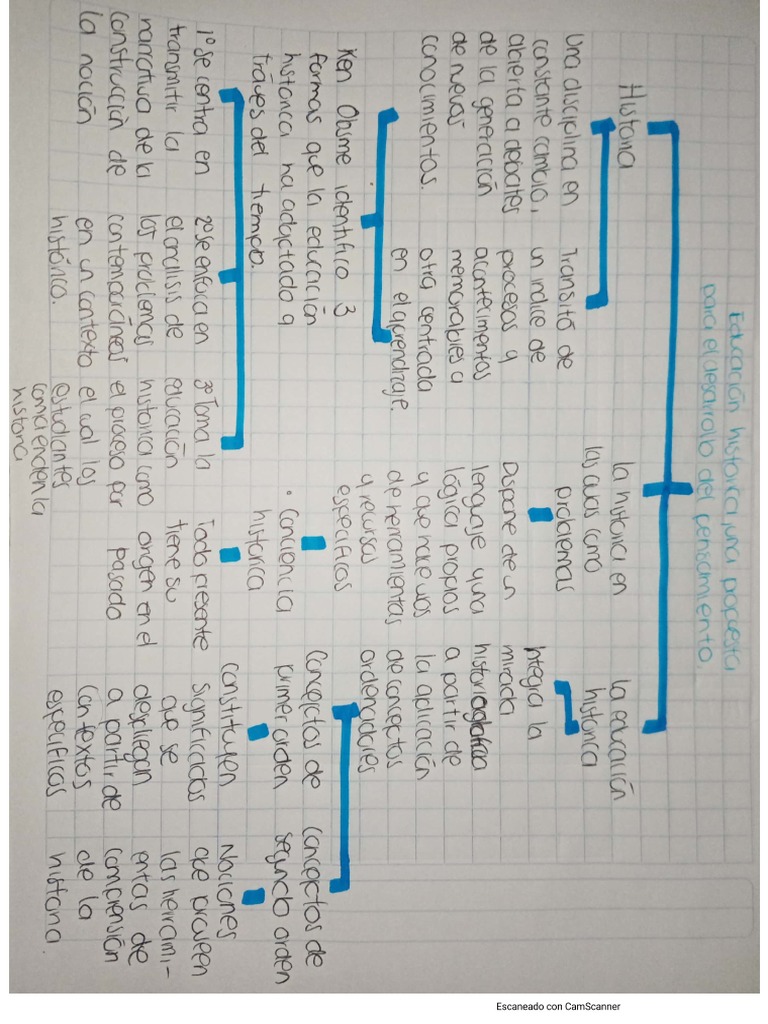 Educación historica, una propuesta
para el desarrollo del pensamiento.
Historia
Una disciplina en
constante cambio,
abierta a debates
de la generación
de nuevos
conocimientos.
Transitó de
un indice de
procesos y
acontecimientos
memorables a
otra centrada
en el aprendizaje.
Ken Obsme identifico 3
formas que la educación
historica ha adaptado a
tráves del tiempo.
1º se centra en
transmitir la
narrativa de la
construcción de
la nación
2º se enfoca en
el análisis de
los problemas
contemporáneos
en un contexto
histórico.
3º Toma la
educación
historica como
el proceso por
el cual los
estudiantes
comprenden la
historia
la historia en
las aulas como
problemas
Dispone de un
lenguaje y una
lógica propios
y que hace uso
de herramientas
y recursos
especificos
• Conciencia
historica
Todo presente
tiene su
origen en el
pasado
la educación
historica
Integra la
mirada
historiografica
a partir de
la aplicación
de conceptos
ordenadores
Conceptos de
primer orden
Constituyen
significados
que se
despliegan
a partir de
Contextos
especificos
Conceptos de
segundo orden
Nociones
que proveen
las herrami-
entas de
comprensión
de la
historia
Escaneado con CamScanner